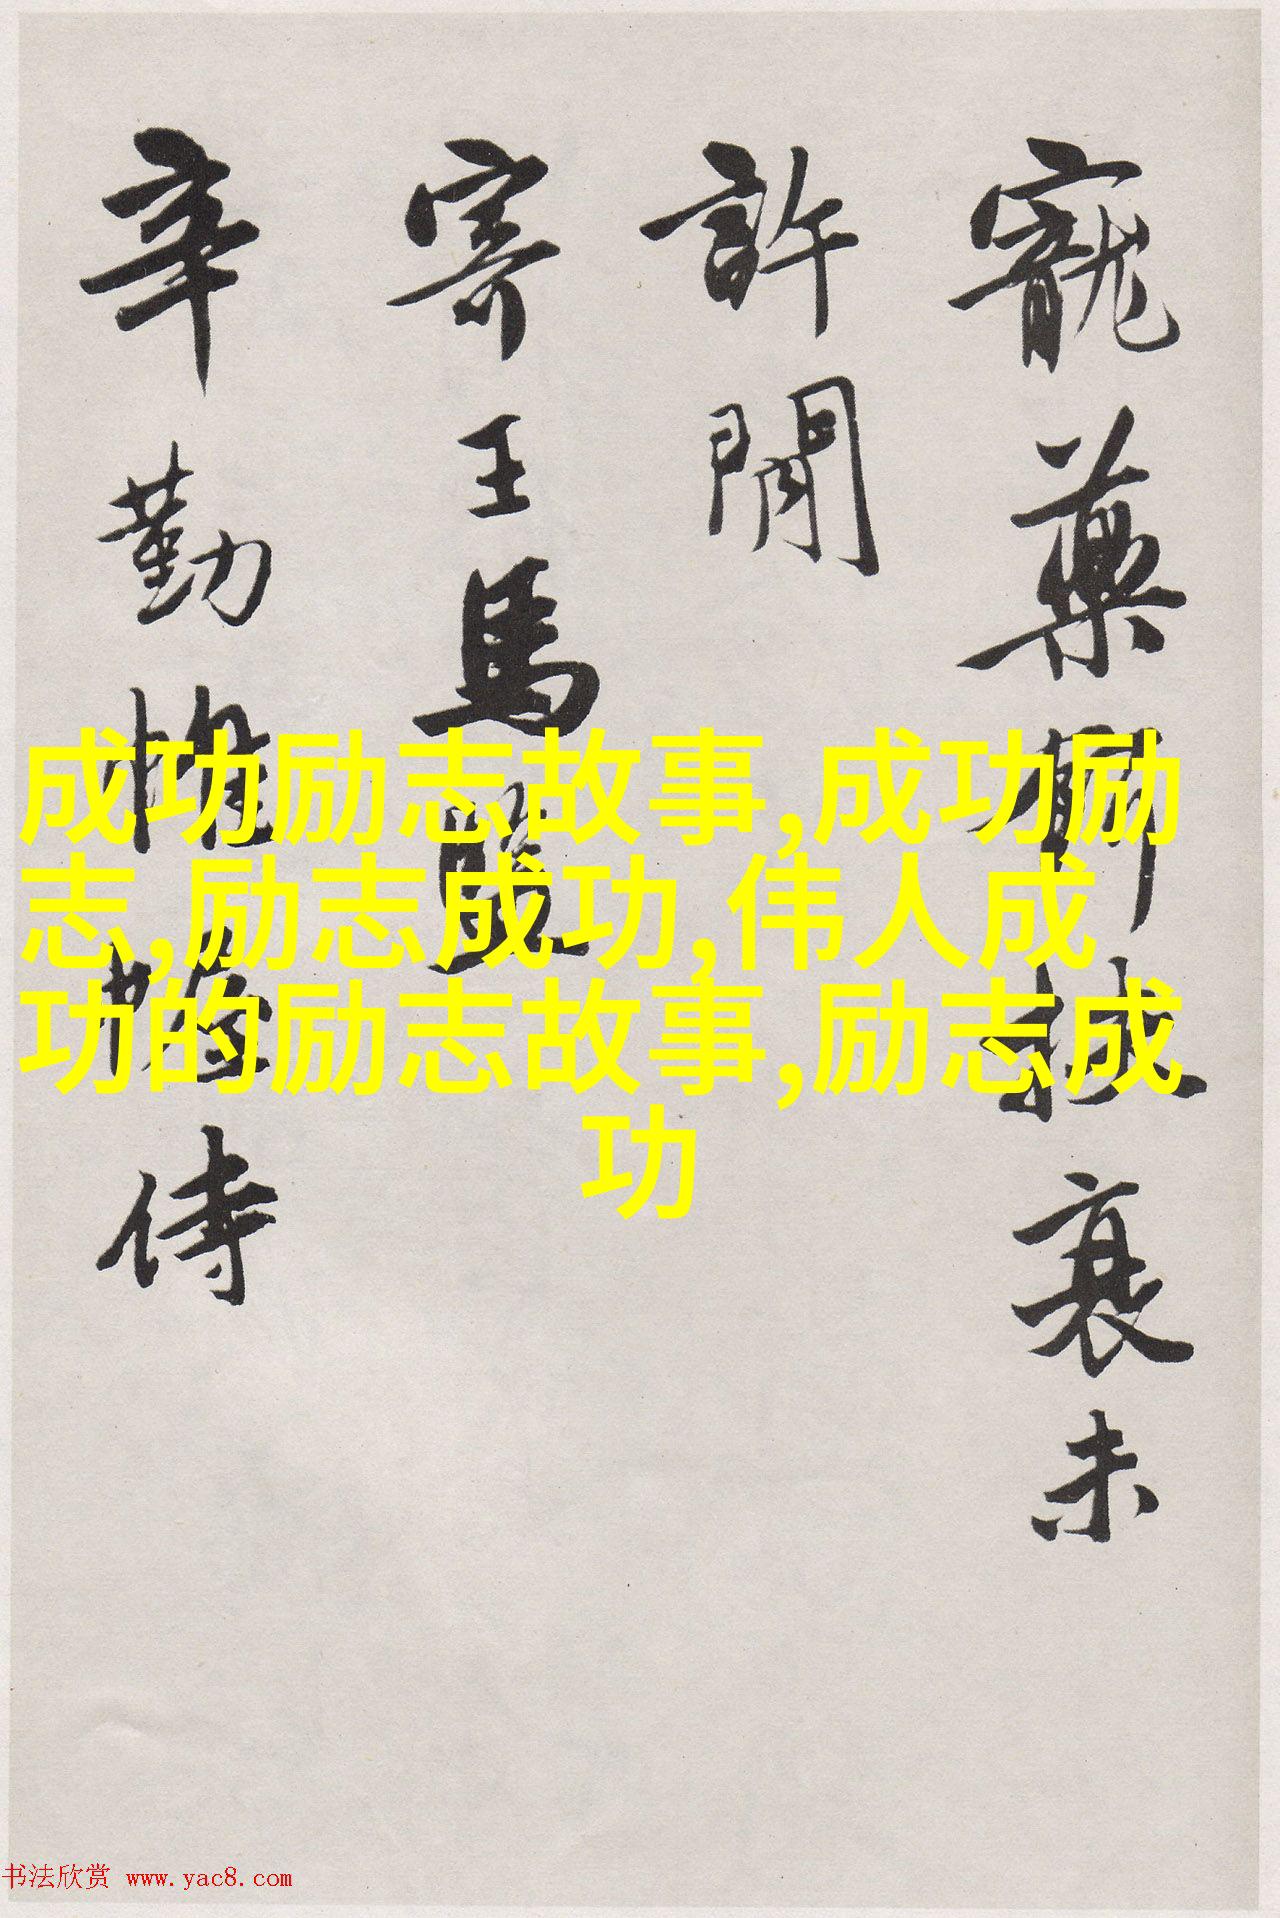 寵藥聊扶衰未
許閒
寄王馬監
辛勤惟婦侍
成功励志故事,成功励
志,励志成功,伟人成
功的励志故事,励志成
功
书法欣赏 www.yac8.com